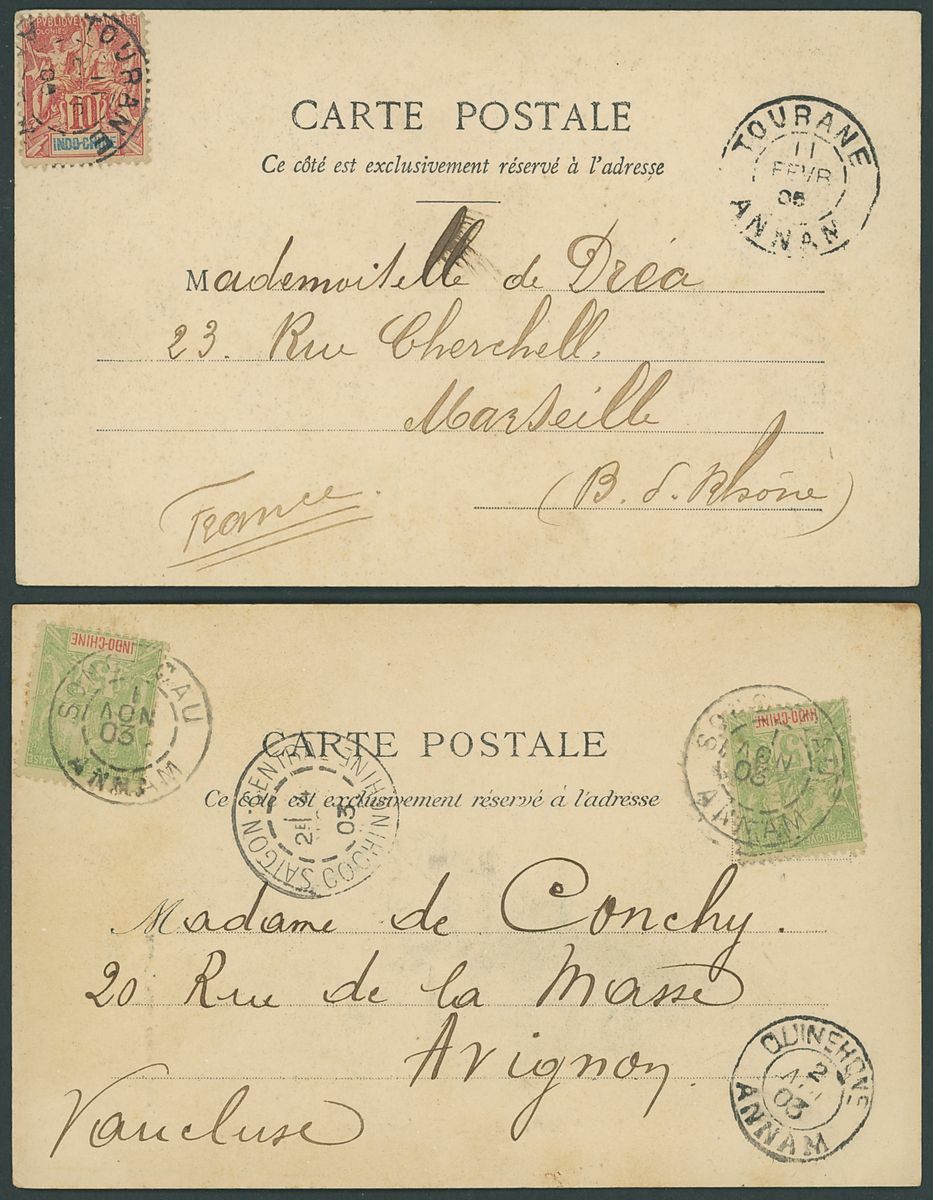 RÉPUBLIQUE FRANÇAISE
COLONIES
10
INDO-CHINE
TOURANE
CARTE POSTALE
Ce côté est exclusivement réservé à l'adresse
TOURANE
11
FEVR
05
ANNAM
Mademoiselle de Dréa
23. Rue Cherchell,
Marseille
(B. d. Rhône)
France.
INDO-CHINE
SONG-CAU
1
NOV
03
ANNAM
CARTE POSTALE
Ce côté est exclusivement réservé à l'adresse
SAIGON-CENTRAL
2E
03
COCHINCHINE
INDO-CHINE
5
SONG-CAU
1
NOV
03
ANNAM
Madame de Conchy.
20 Rue de la Masse
Avignon
Vaucluse
QUINEHONE
2
03
ANNAM